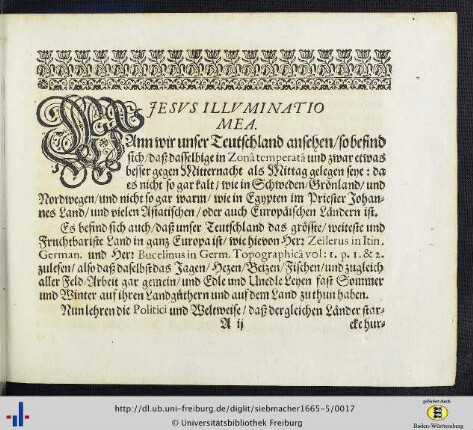 JESVS ILLVMINATIO
MEA.
WAnn wir unser Teutschland ansehen/so befind
sich/daß dasselbige in Zonâ temperatâ und zwar etwas
besser gegen Mitternacht als Mittag gelegen seye: da
es nicht so gar kalt/wie in Schweden/Grönland/und
Nordwegen/und nicht so gar warm/wie in Egypten im Priester Johan-
nes Land/und vielen Asiatischen/oder auch Europäischen Ländern ist.
Es befind sich auch/daß unser Teutschland das grösste/weiteste und
Fruchtbariste Land in ganz Europa ist/wie hievon Her: Zeilerus in Itin.
German. und Her: Bucelinus in Germ. Topographicâ vol: 1. p. 1. & 2.
zulesen/also daß daselbst das Jagen/Hezen/Beizen/Fischen/und zugleich
aller Feld-Arbeit gar gemein/und Edle und Unedle Leyen fast Sommer
und Winter auf ihren Landgüthern und auf dem Land zu thun haben.
Nun lehren die Politici und Weltweise/daß dergleichen Länder star-
A ij
cke hur-
http://dl.ub.uni-freiburg.de/diglit/siebmacher1665-5/0017
© Universitätsbibliothek Freiburg
gefördert durch
Baden-Württemberg